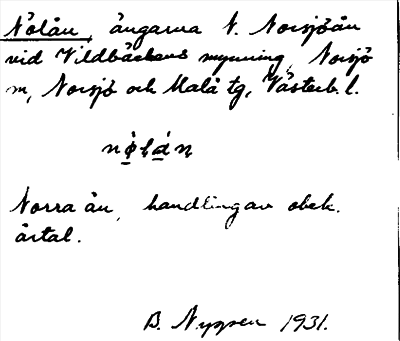 Nolån, ångarna N. Norsjöån
vid Vildbäckens mynning, Norsjö
m, Norsjö och Malå tg, Västerb. l.
Norra ån, handlingar obek.
årtal.
B. Nygren 1931.